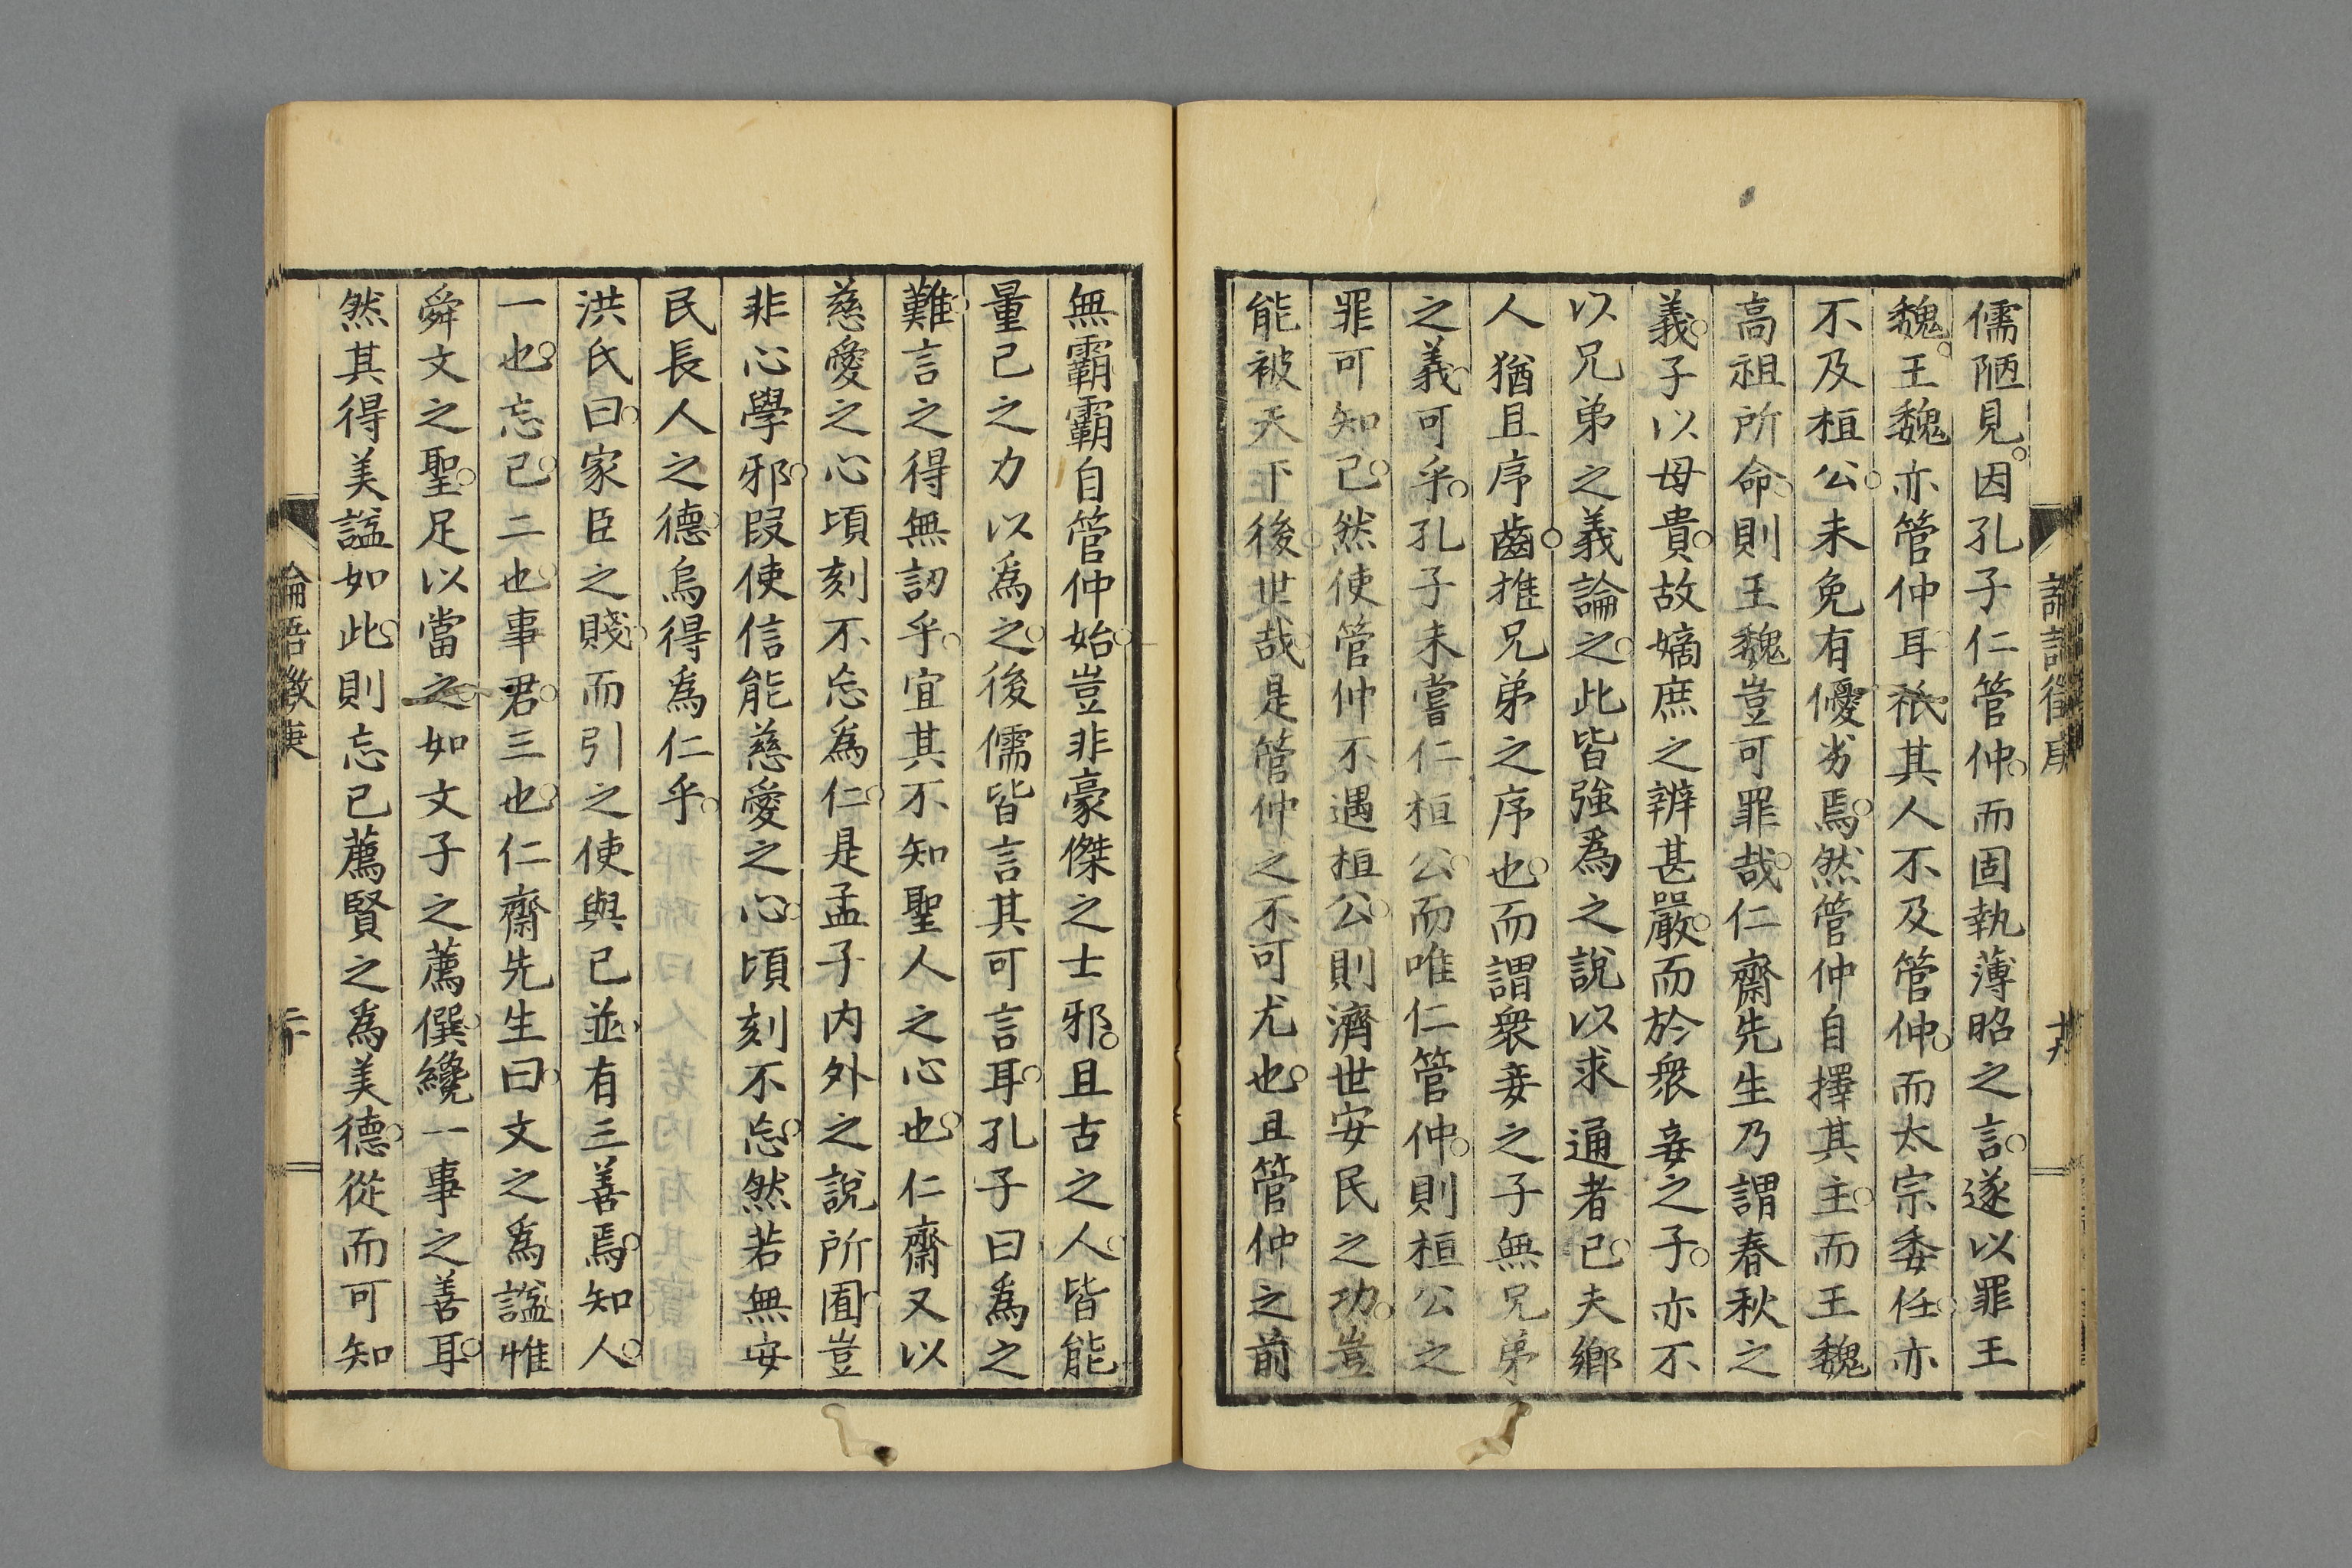 儒陋見。因孔子仁管仲。而固執薄昭之言。遂以罪王
魏。王魏亦管仲耳。祇其人不及管仲。而太宗委任。亦
不及桓公。未免有優劣焉。然管仲自擇其主。而王魏
高祖所命。則王魏豈可罪哉。仁齋先生乃謂春秋之
義。子以母貴。故嫡庶之辨甚嚴。而於衆妾之子。亦不
以兄弟之義論之。此皆強爲之說以求通者已。夫鄉
人猶且序齒。推兄弟之序也。而謂衆妾之子無兄弟
之義。可乎。孔子未嘗仁桓公。而唯仁管仲。則桓公之
罪可知已。然使管仲不遇桓公。則濟世安民之功。豈
能被天下後世哉。是管仲之不可尤也。且管仲之前
無霸。霸自管仲始。豈非豪傑之士邪。且古之人。皆能
量己之力以爲之。後儒皆言其可言耳。孔子曰爲之
難。言之得無訒乎。宜其不知聖人之心也。仁齋又以
慈愛之心頃刻不忘爲仁。是孟子內外之說所囿。豈
非心學邪。叚使信能慈愛之心。頃刻不忘。然若無安
民長人之德。烏得爲仁乎。
洪氏曰。家臣之賤。而引之使與己並。有三善焉。知人。
一也。忘己。二也。事君。三也。仁齋先生曰。文之爲謚。惟
舜文之聖。足以當之。如文子之薦僎。纔一事之善耳。
然其得美謚如此。則忘己薦賢之爲美德。從而可知
論語徵庚